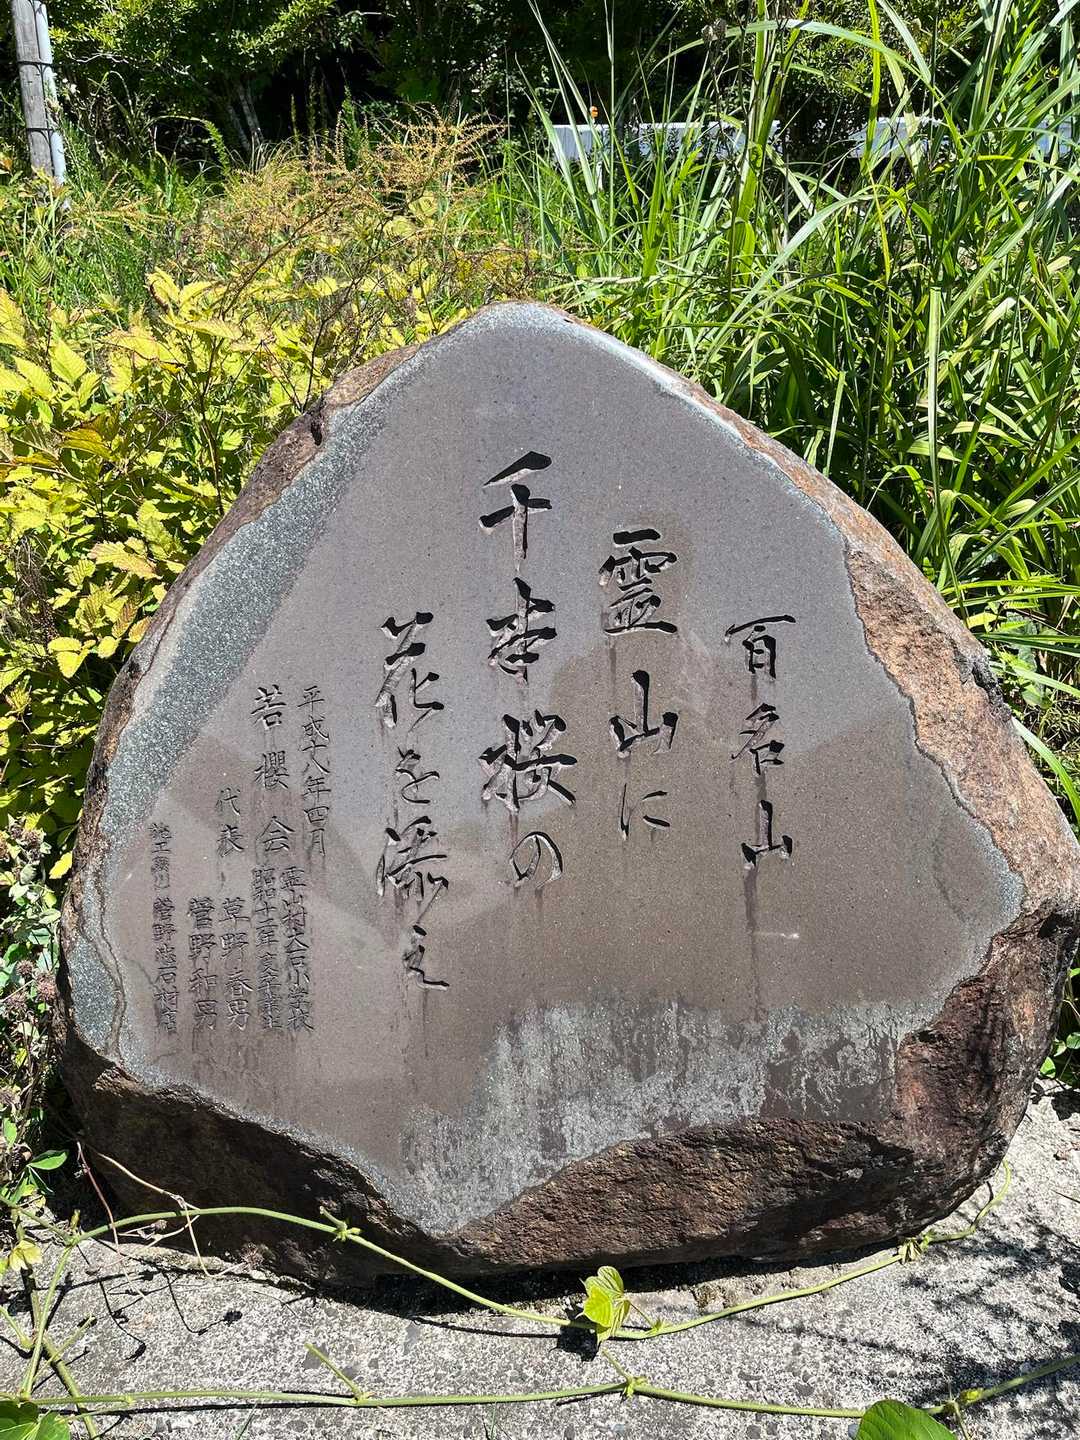 百名山
霊山に
千本桜の
花を添え
平成十八年四月
霊山村大石小学校
若櫻会
昭和十二年度卒業生
代表
草野春男
菅野和男
菅野石材店